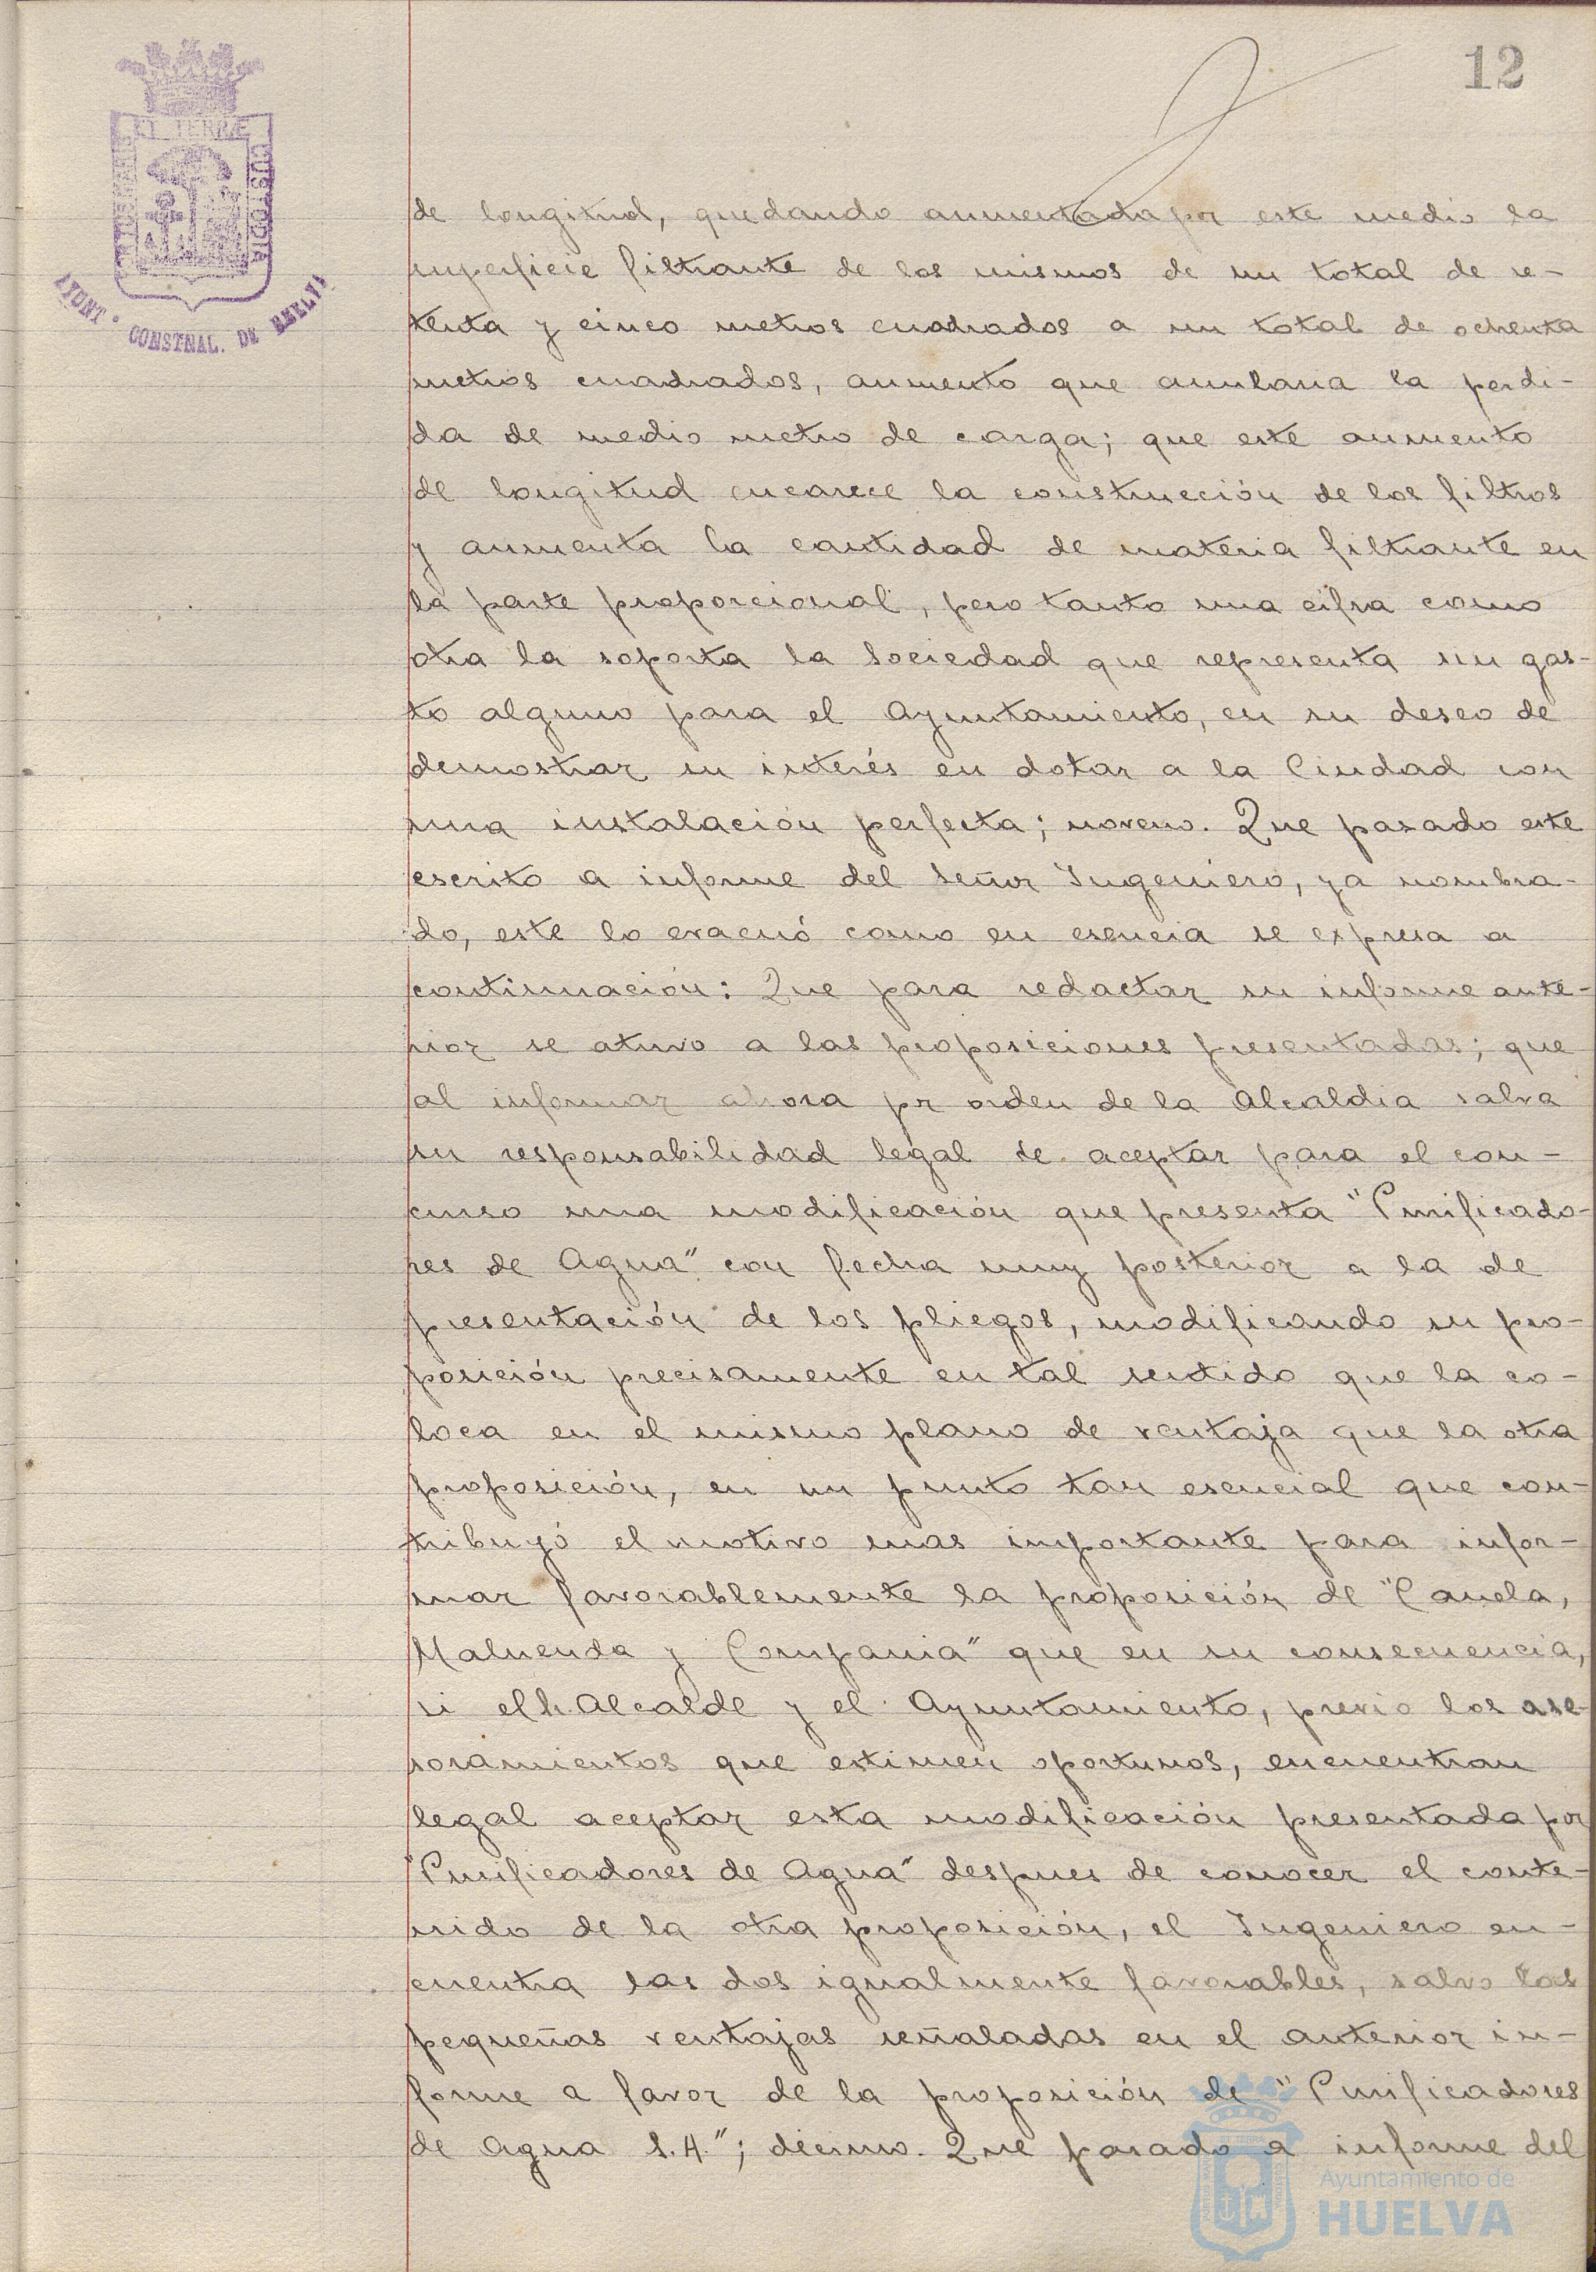 12
PORTUS MARIS ET TERRÆ CUSTODIA
AYUNT. CONSTNAL. DE HUELVA
de longitud, quedando aumentada por este medio la
superficie filtrante de los mismos de un total de se-
tenta y cinco metros cuadrados a un total de ochenta
metros cuadrados, aumento que anularia la perdi-
da de medio metro de carga; que este aumento
de longitud encarece la construcción de los filtros
y aumenta la cantidad de materia filtrante en
la parte proporcional, pero tanto una cifra como
otra la soporta la Sociedad que representa sin gas-
to alguno para el Ayuntamiento, en su deseo de
demostrar su interés en dotar a la Ciudad con
una instalación perfecta; noveno. Que pasado este
escrito a informe del Señor Ingeniero, ya nombra-
do, este lo evacuó como en esencia se expresa a
continuación: Que para redactar su informe ante-
rior se atuvo a las proposiciones presentadas; que
al informar ahora pr orden de la Alcaldia salva
su responsabilidad legal de aceptar para el con-
curso una modificación que presenta "Purificado-
res de Agua" con fecha muy posterior a la de
presentación de los pliegos, modificando su pro-
posición precisamente en tal sentido que la co-
loca en el mismo plano de ventaja que la otra
proposición, en un punto tan esencial que con-
tribuyó el motivo mas importante para infor-
mar favorablemente la proposición de "Canela,
Maluenda y Compania" que en su consecuencia,
si el S. Alcalde y el Ayuntamiento, previo los ase-
soramientos que estimen oportunos, encuentran
legal aceptar esta modificación presentada por
"Purificadores de Agua" despues de conocer el conte-
nido de la otra proposición, el Ingeniero en-
cuentra las dos igualmente favorables, salvo las
pequeñas ventajas señaladas en el anterior in-
forme a favor de la proposición de "Purificadores
de Agua S.A."; décimo. Que pasado a informe del
Ayuntamiento de
HUELVA